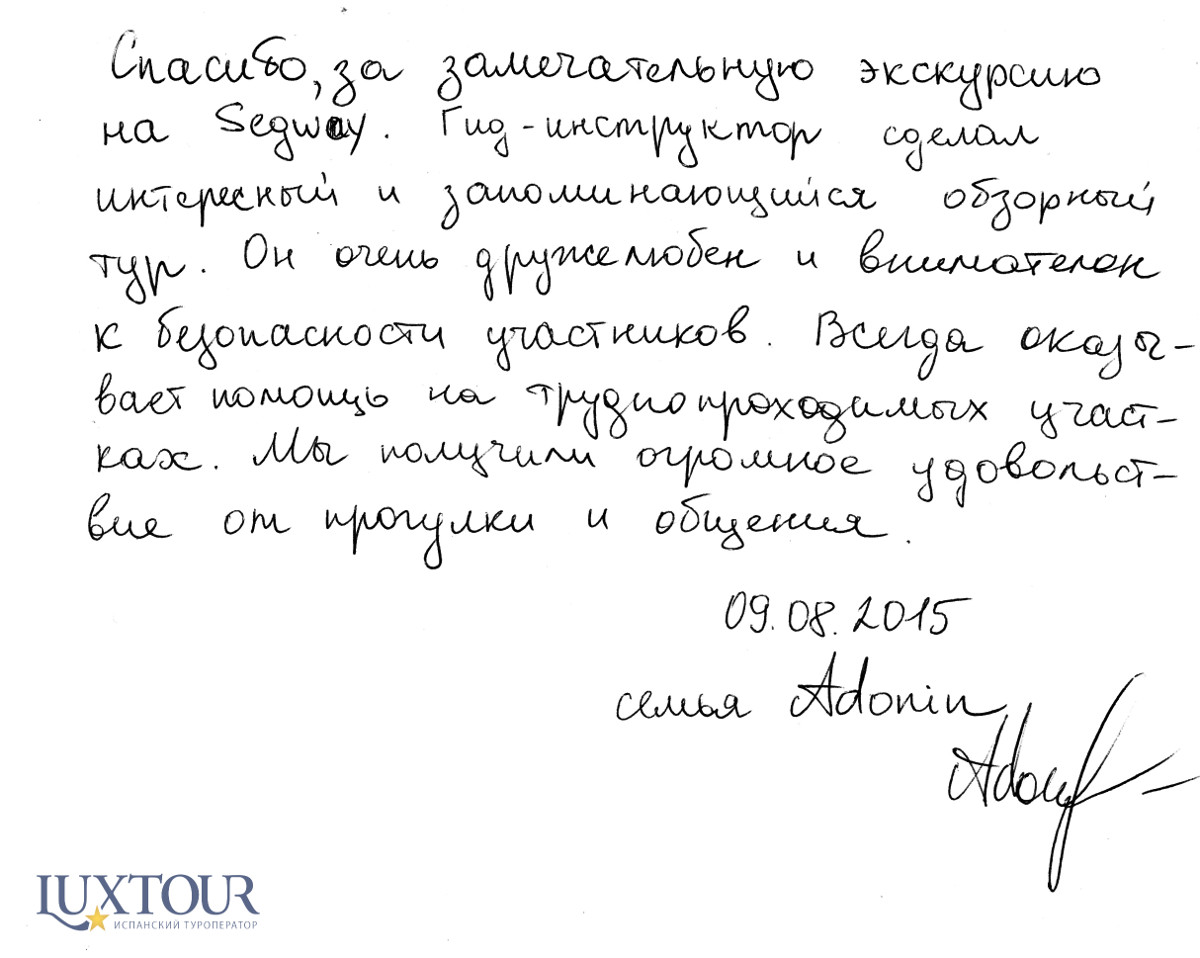 Спасибо, за замечательную экскурсию
на Segway. Гид-инструктор сделал
интересный и запоминающийся обзорный
тур. Он очень дружелюбен и внимателен
к безопасности участников. Всегда оказы-
вает помощь на труднопроходимых участ-
ках. Мы получили огромное удовольст-
вие от прогулки и общения.
09.08.2015
семья Adonin
LUXTOUR
ИСПАНСКИЙ ТУРОПЕРАТОР